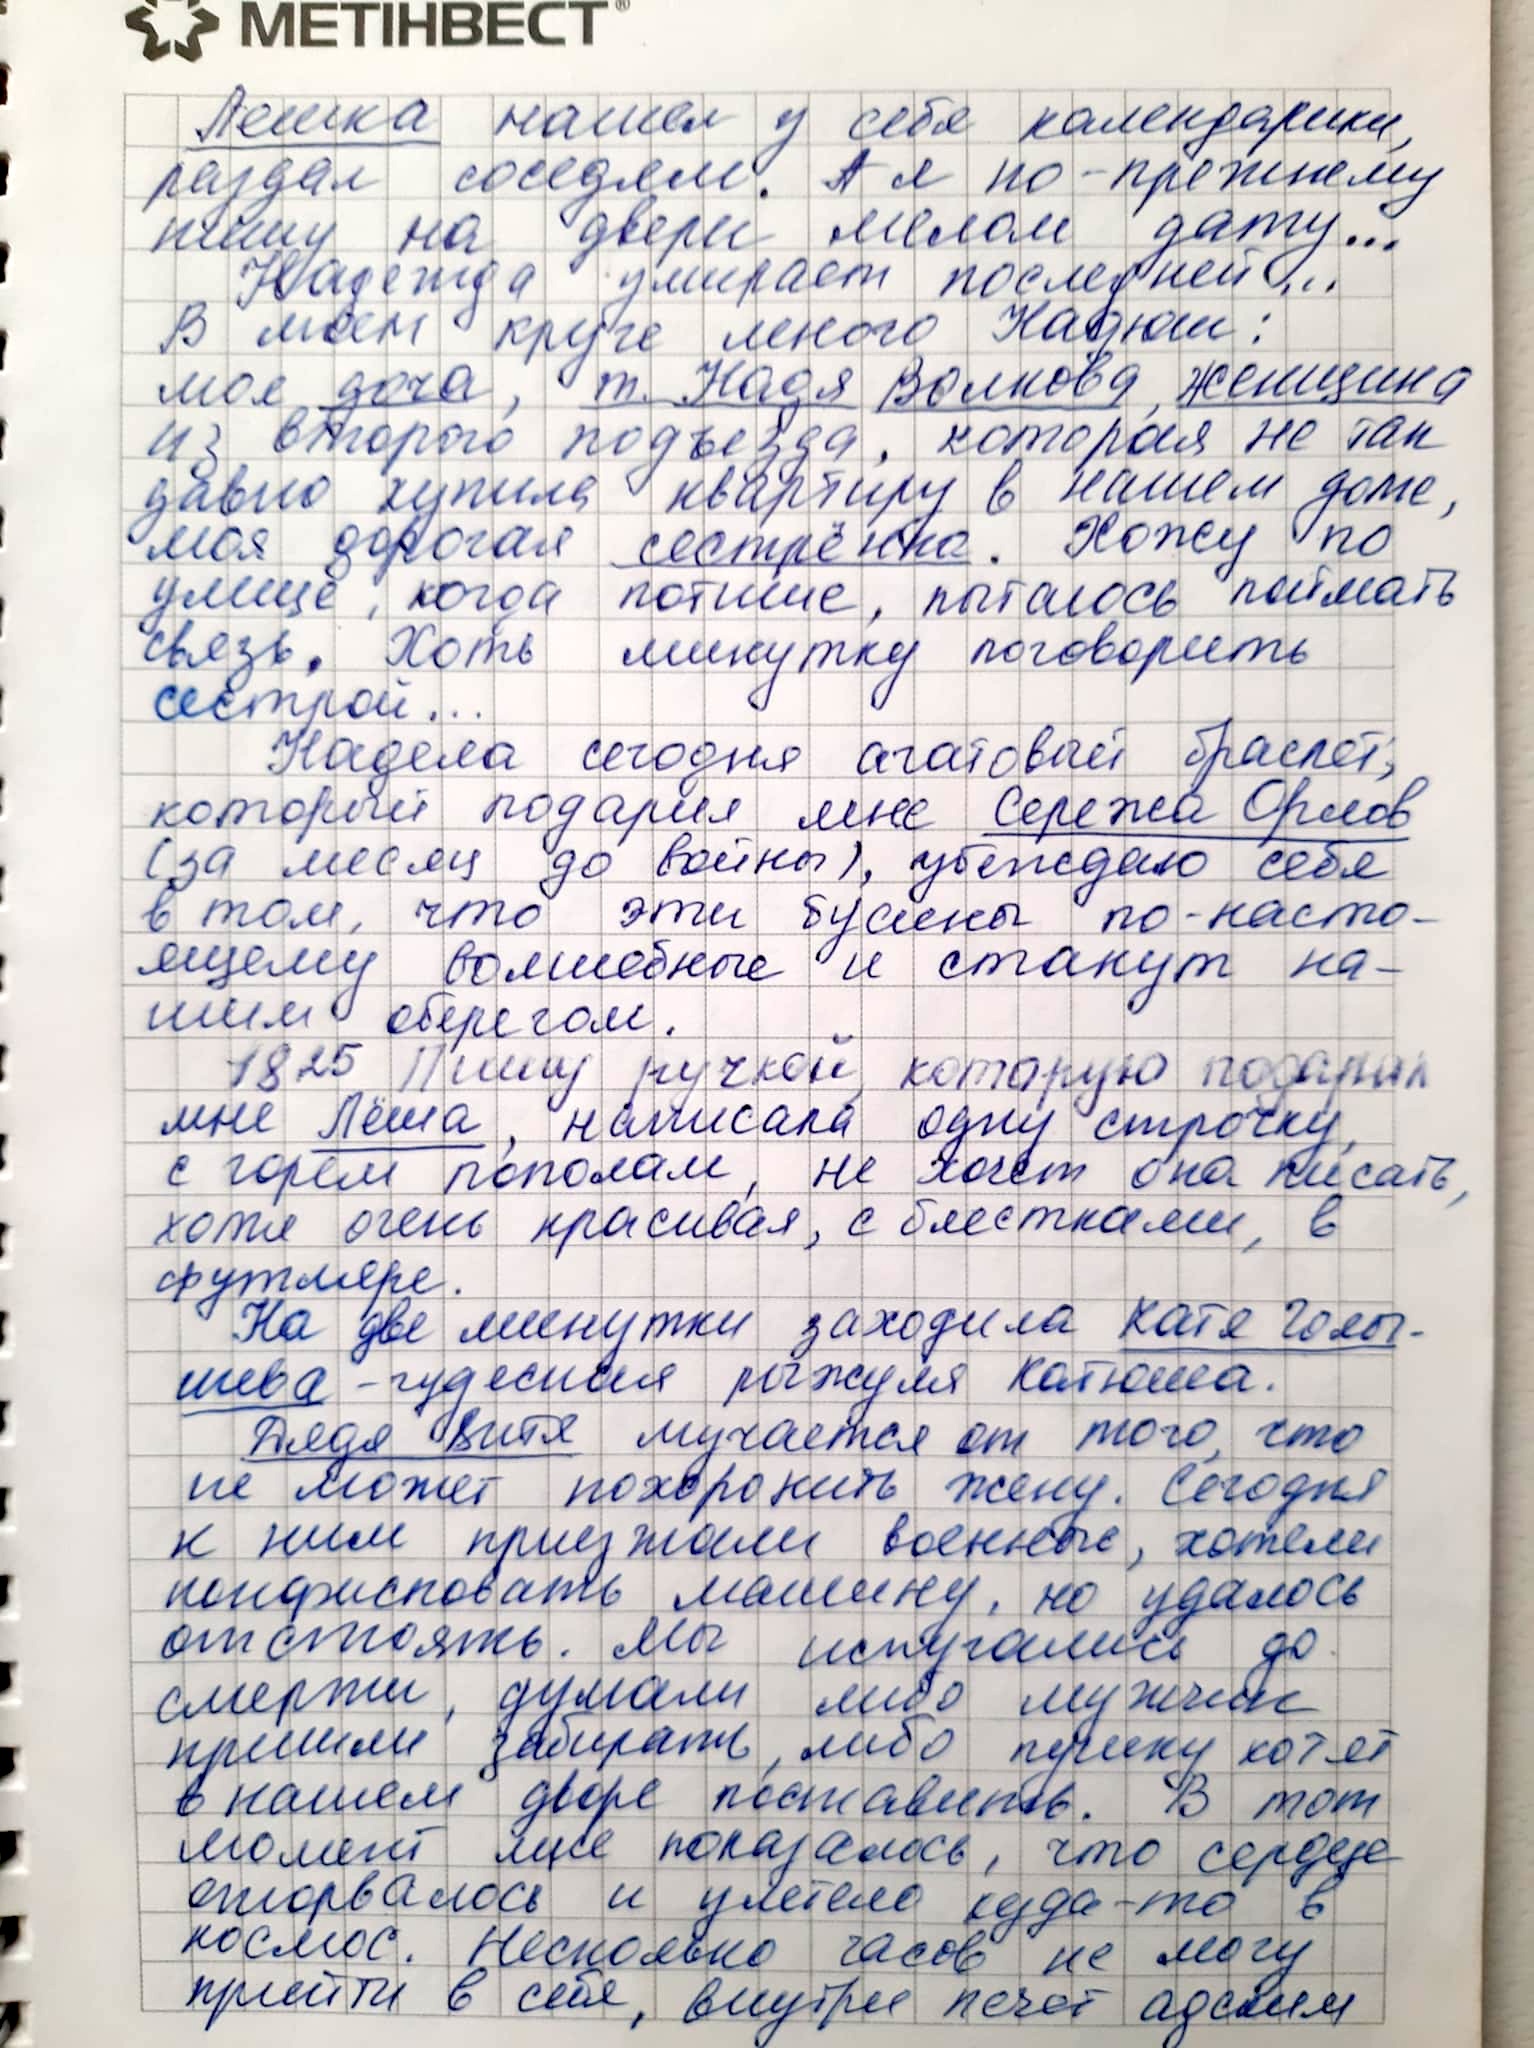 МЕТІНВЕСТ®
Лешка нашел у себя календарики,
раздал соседям. А я по-прежнему
пишу на двери мелом дату...
Надежда умирает последней...
В моем круге много Надюш:
моя доча, т. Надя Волкова, женщина
из второго подъезда, которая не так
давно купила квартиру в нашем доме,
моя дорогая сестрёнка. Хожу по
улице, когда потише, пытаюсь поймать
связь. Хоть минутку поговорить
сестрой...
Надела сегодня агатовый браслет,
который подарил мне Сережа Орлов
(за месяц до войны), убеждаю себя
в том, что эти бусины по-насто-
ящему волшебные и станут на-
шим оберегом.
1825 Пишу ручкой, которую подарил
мне Лёша, написала одну строчку,
с горем пополам, не хочет она писать,
хотя очень красивая, с блестками, в
футляре.
На две минутки заходила Катя Голы-
шева - чудесная рыжуля Катюша.
Дядя Витя мучается от того, что
не может похоронить жену. Сегодня
к ним приезжали военные, хотели
конфисковать машину, но удалось
отстоять. Мы испугались до
смерти, думали либо мужчин
пришли забирать, либо пушку хотят
в нашем дворе поставить. В тот
момент мне показалось, что сердце
оторвалось и улетело куда-то в
космос. Несколько часов не могу
прийти в себя, внутри печет адским